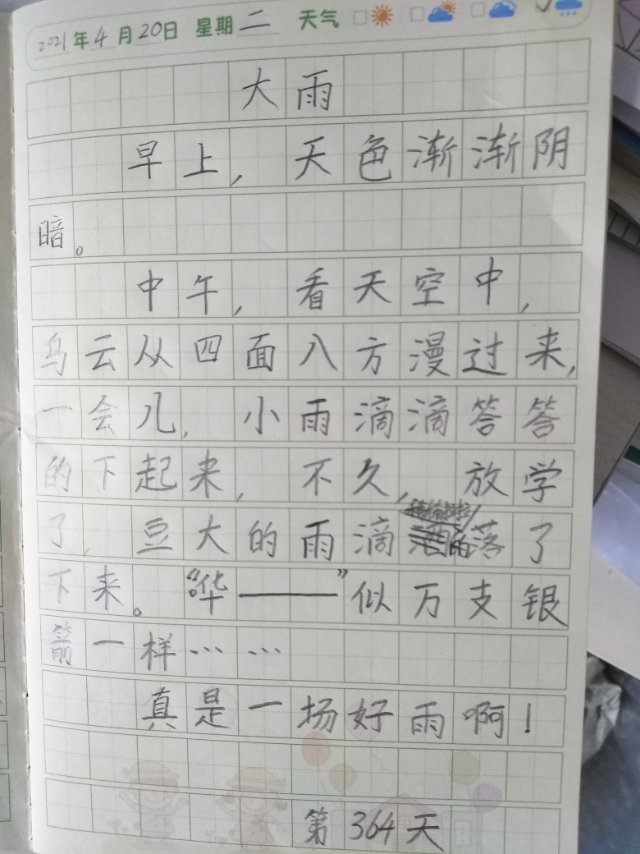 2021年4月20日 星期二 天气
大雨
早上，天色渐渐阴
暗。
中午，看天空中，
乌云从四面八方漫过来，
一会儿，小雨滴滴答答
的下起来，不久，放学
了，豆大的雨滴洒落了
下来。“哗——”似万支银
箭一样……
真是一场好雨啊！
第364天